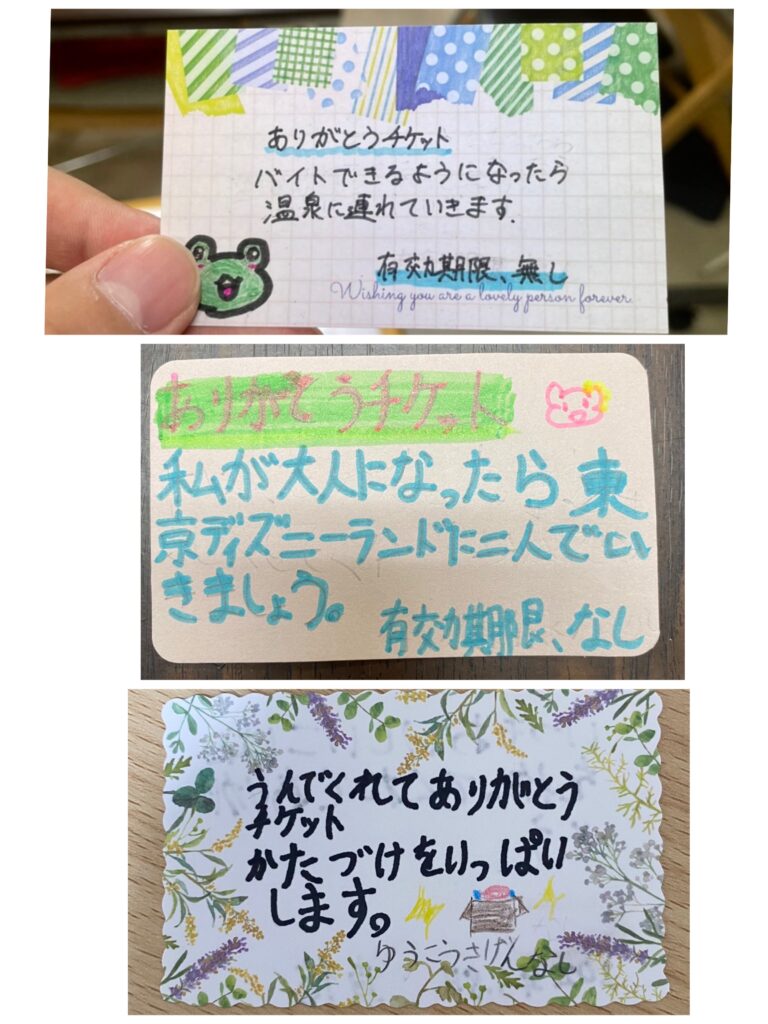 ありがとうチケット
バイトできるようになったら
温泉に連れていきます.
有効期限、無し
Wishing you are a lovely person forever.
ありがとうチケット
私が大人になったら東
京ディズニーランドに二人でい
きましょう。
有効期限、なし
うんでくれてありがとう
チケット
かたづけをいっぱい
します。
ゆうこうきげんなし